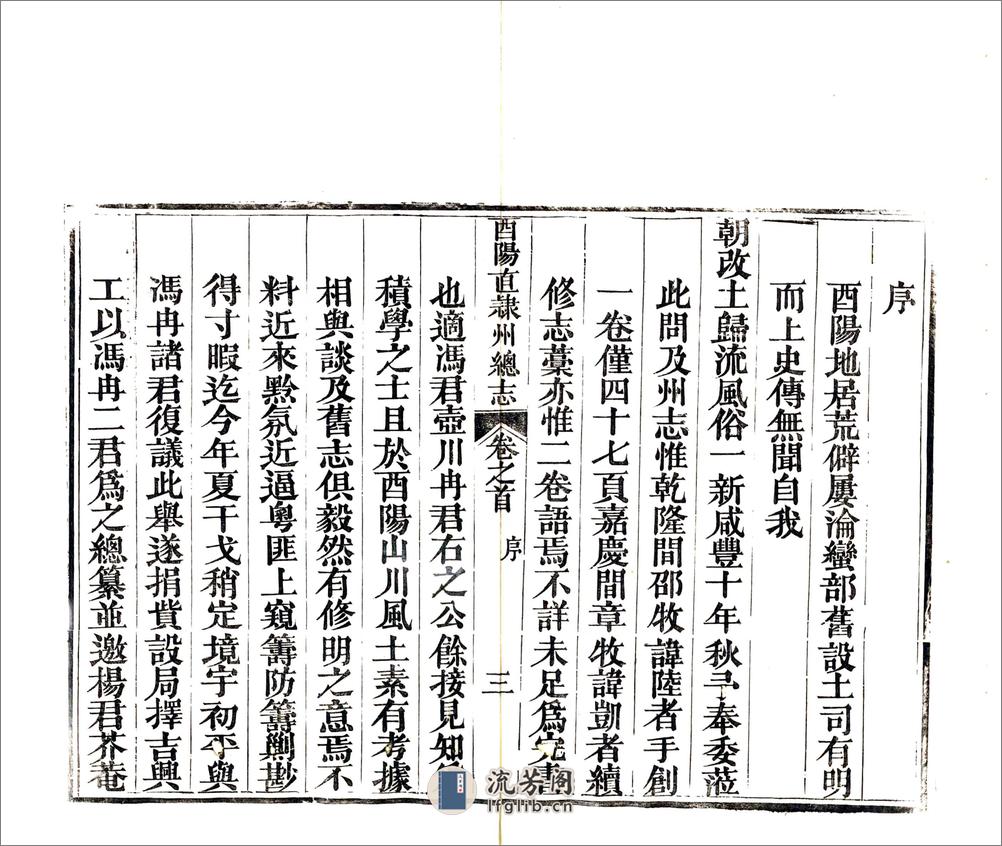 序
酉陽地居荒僻屢淪蠻部舊設土司有明
而上史傳無聞自我
朝改土歸流風俗一新咸豐十年秋予奉委蒞
此問及州志惟乾隆間邵牧諱陸者手創
一卷僅四十七頁嘉慶間章牧諱凱者續
修志藁亦惟二卷語焉不詳未足爲完書
酉陽直隸州總志 卷之首 序 三
也適馮君壺川冉君石之公餘接見知
積學之士且於酉陽山川風土素有考據
相與談及舊志俱毅然有修明之意焉不
料近來黔氛近逼粵匪上窺籌防籌勦尠
得寸暇迄今年夏干戈稍定境宇初平與
馮冉諸君復議此舉遂捐貲設局擇吉興
工以馮冉二君爲之總纂並邀楊君芥菴
流芳閣
lfglib.cn